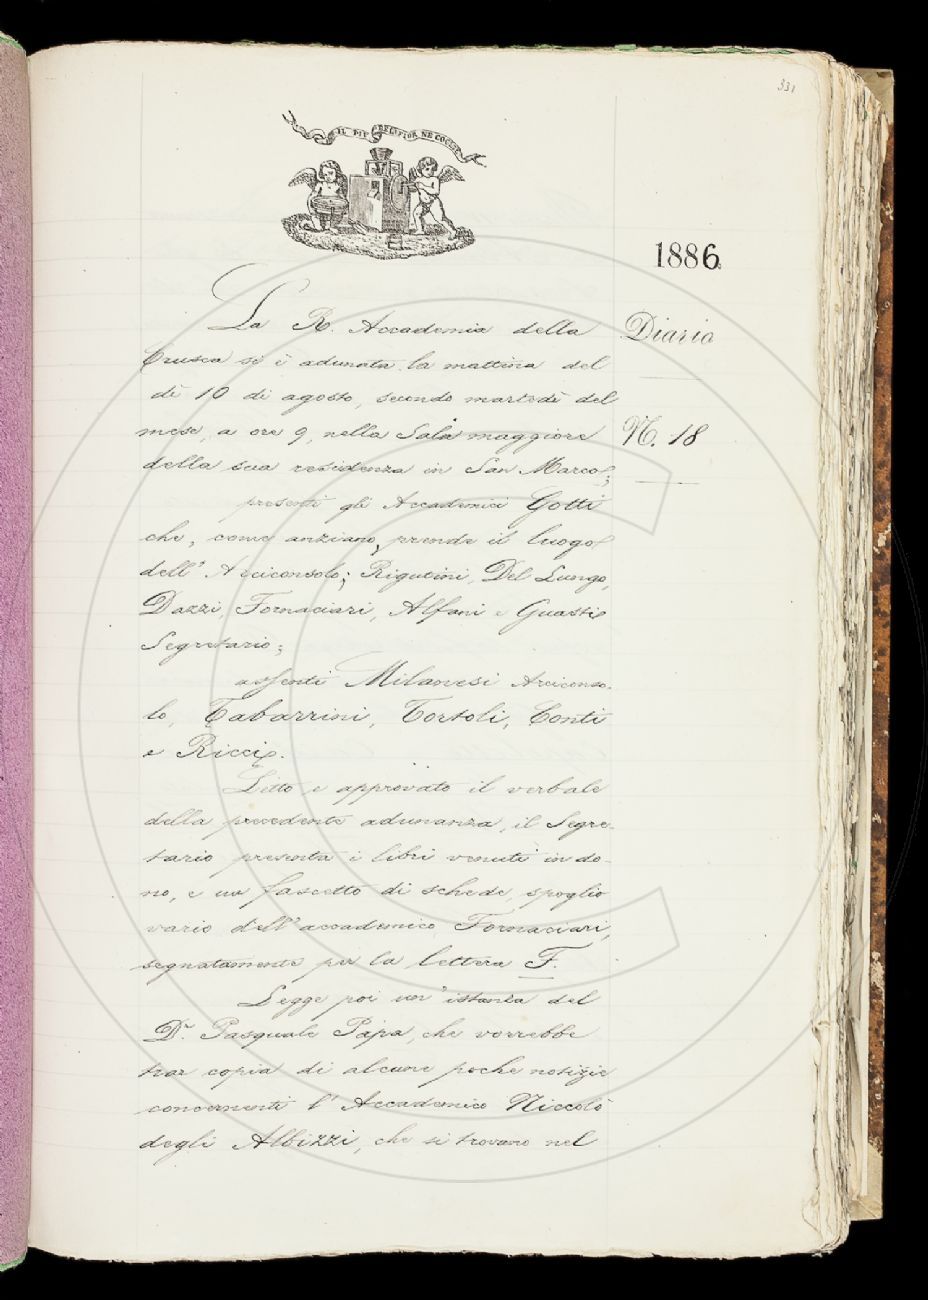 331
IL PIÙ BEL FIOR NE COGLIE
1886
Diario
N. 18
La R. Accademia della
Crusca si è adunata la mattina del
dì 10 di agosto, secondo martedì del
mese, a ore 9, nella Sala maggiore
della sua residenza in San Marco;
presenti gli Accademici Gotti
che, come anziano, prende il luogo
dell'Arciconsolo; Rigutini, Del Lungo,
Dazzi, Fornaciari, Alfani e Guasti
Segretario;
assenti Milanesi Arciconso-
lo, Tabarrini, Tortoli, Conti
e Ricci.
Letto e approvato il verbale
della precedente adunanza, il Segre-
tario presenta i libri venuti in do-
no, e un fascetto di schede, spoglio
vario dell'accademico Fornaciari,
segnatamente per la lettera F.
Legge poi un'istanza del
Dr. Pasquale Papa, che vorrebbe
trar copia di alcune poche notizie
concernenti l'Accademico Niccolò
degli Albizzi, che si trovano nel